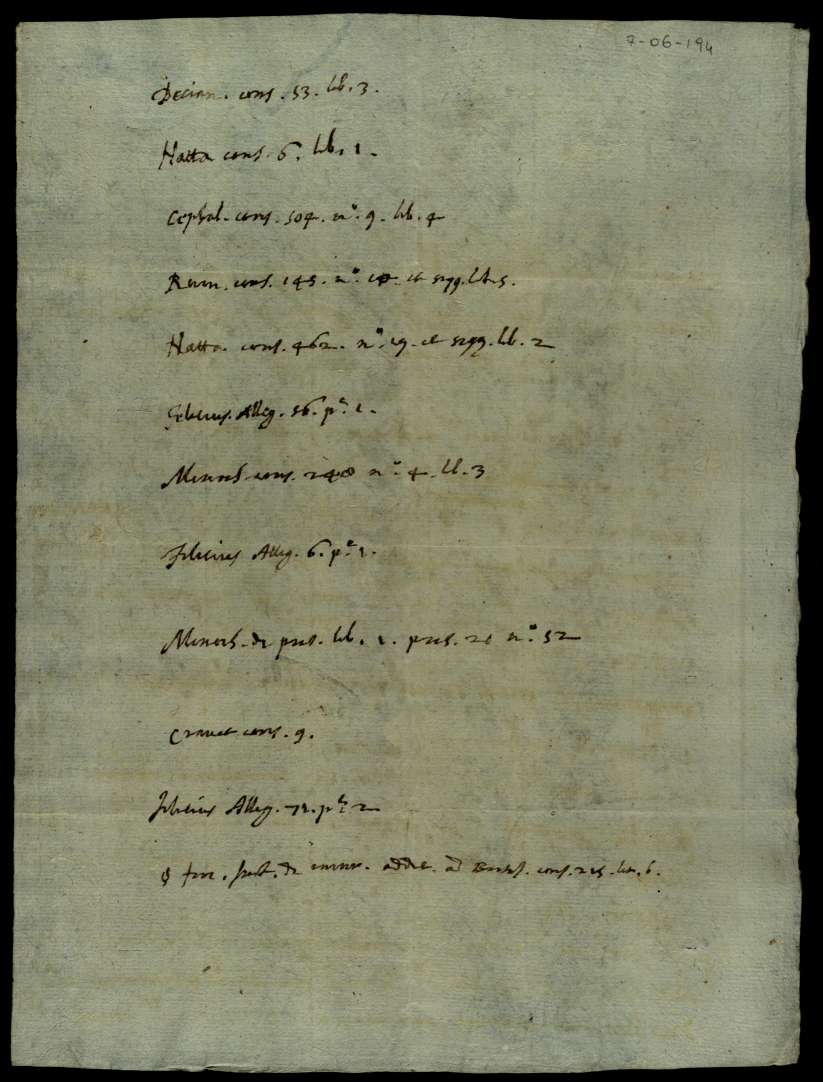 7-06-194
Decian. cons. 53. lib. 3.
Natta cons. 6. lib. 1.
Cephal. cons. 504. n.º 9. lib. 4
Ruin. cons. 145. n.º et seqq. lib. 5.
Natta. cons. 462. n.º 19. et seqq. lib. 2
Felicius. Alleg. 56. p.e 1.
Menoch. cons. 240 n.º 4. lib. 3
Felicius Alleg. 6. p.e 1.
Menoch. de pres. lib. 1. pres. 21 n.º 52
Cravet cons. 9.
Felicius Alleg. p.e 2
de ad cons. lib. 6.